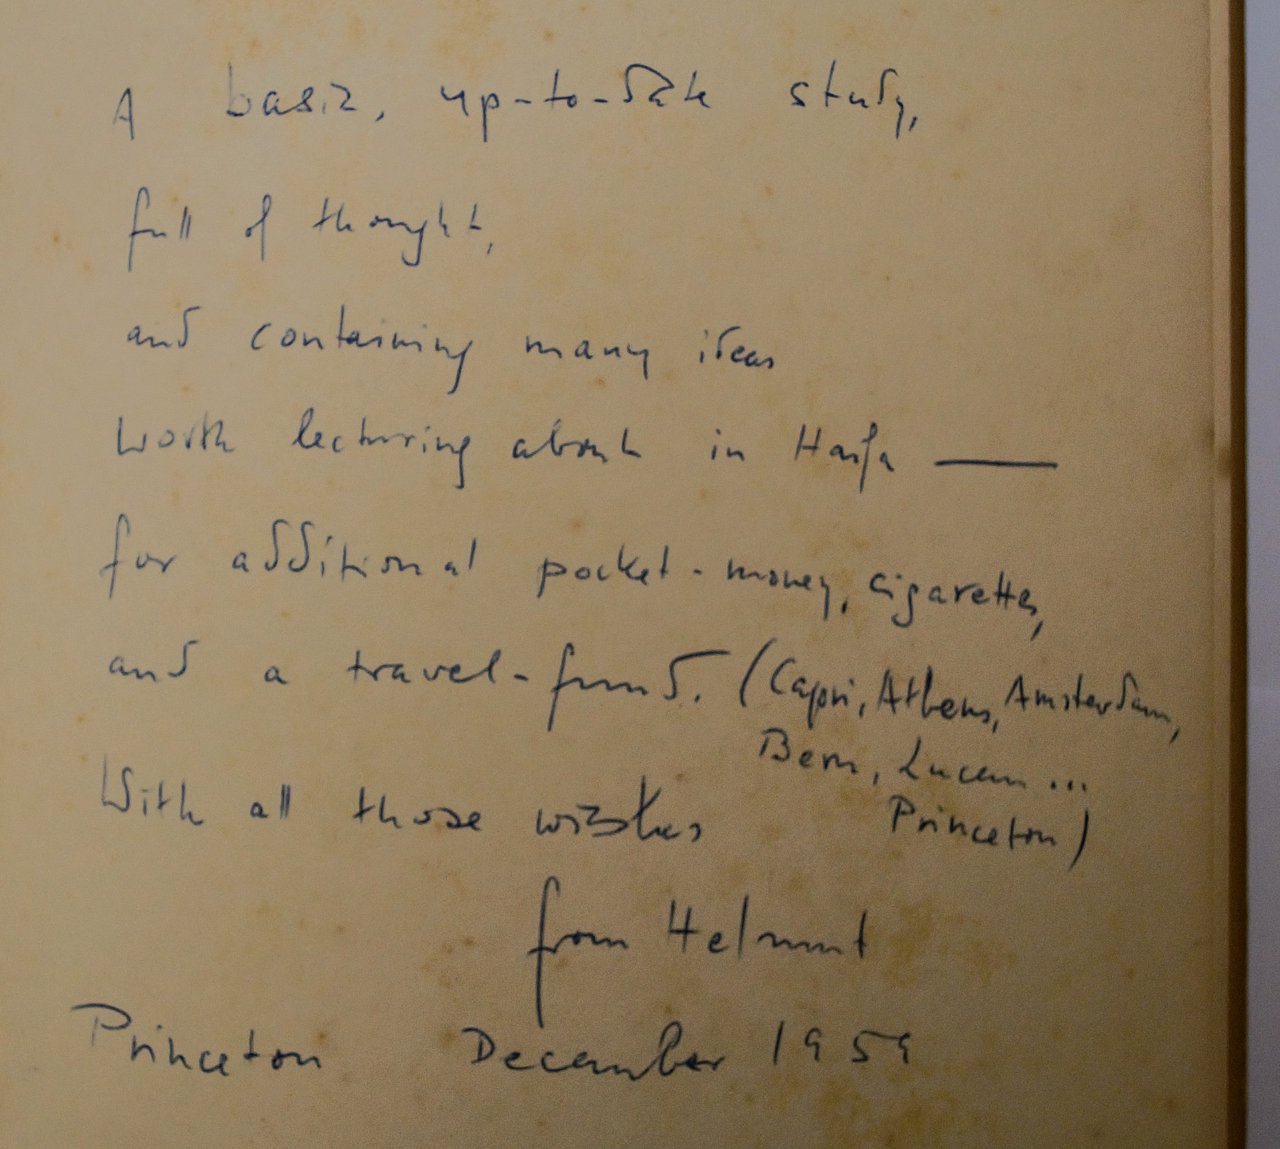 A basic, up-to-date study,
full of thought,
and containing many ideas
worth lecturing about in Haifa —
for additional pocket-money, cigarettes,
and a travel-fund. (Capri, Athens, Amsterdam,
Bern, Lucern ...
Princeton)
With all those wishes
from Helmut
Princeton December 1959